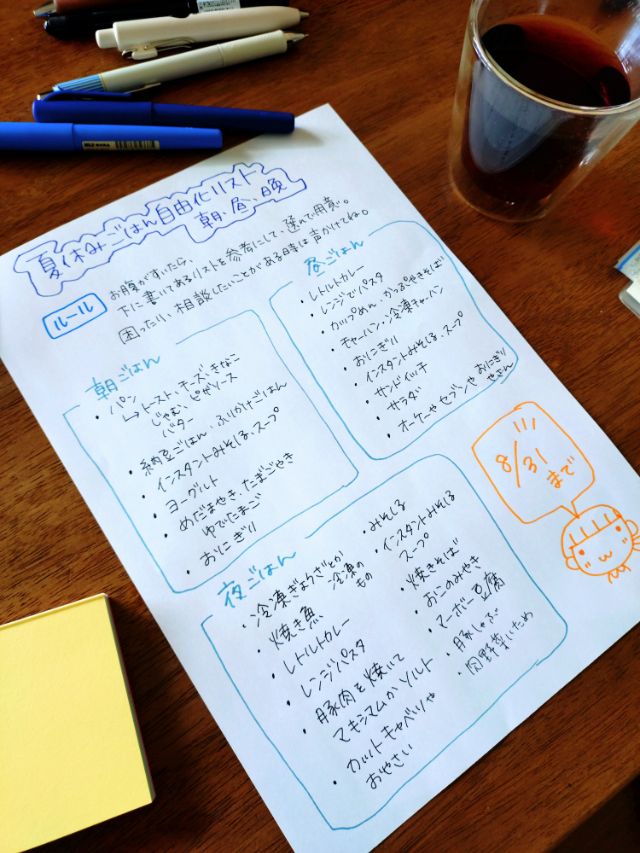 夏休みごはん自由化リスト
朝、昼、晩
ルール
お腹がすいたら、
下に書いてあるリストを参考にして、選んで用意。
困ったり、相談したいことがある時は声かけてね。
朝ごはん
・パン
↳トースト、チーズ、きなこ
じゃむ、ピザソース
バター
・納豆ごはん、ふりかけごはん
・インスタントみそしる、スープ
・ヨーグルト
・めだまやき、たまごやき
ゆでたまご
・おにぎり
昼ごはん
・レトルトカレー
・レンジでパスタ
・カップめん、かっぷやきそば
・チャーハン・冷凍チャーハン
・おにぎり
・インスタントみそしる、スープ
・サンドイッチ
・サラダ
・オーケーやセブンやおにぎり
やさん
夜ごはん
・冷凍ぎょうざとか
冷凍のもの
・焼き魚
・レトルトカレー
・レンジパスタ
・豚肉を焼いて
マキシマムかソルト
・カットキャベツや
おやさい
・みそしる
・インスタントみそしる
スープ
・焼きそば
・おこのみやき
・マーボー豆腐
・豚しゃぶ
・肉野菜いため
8/31
まで